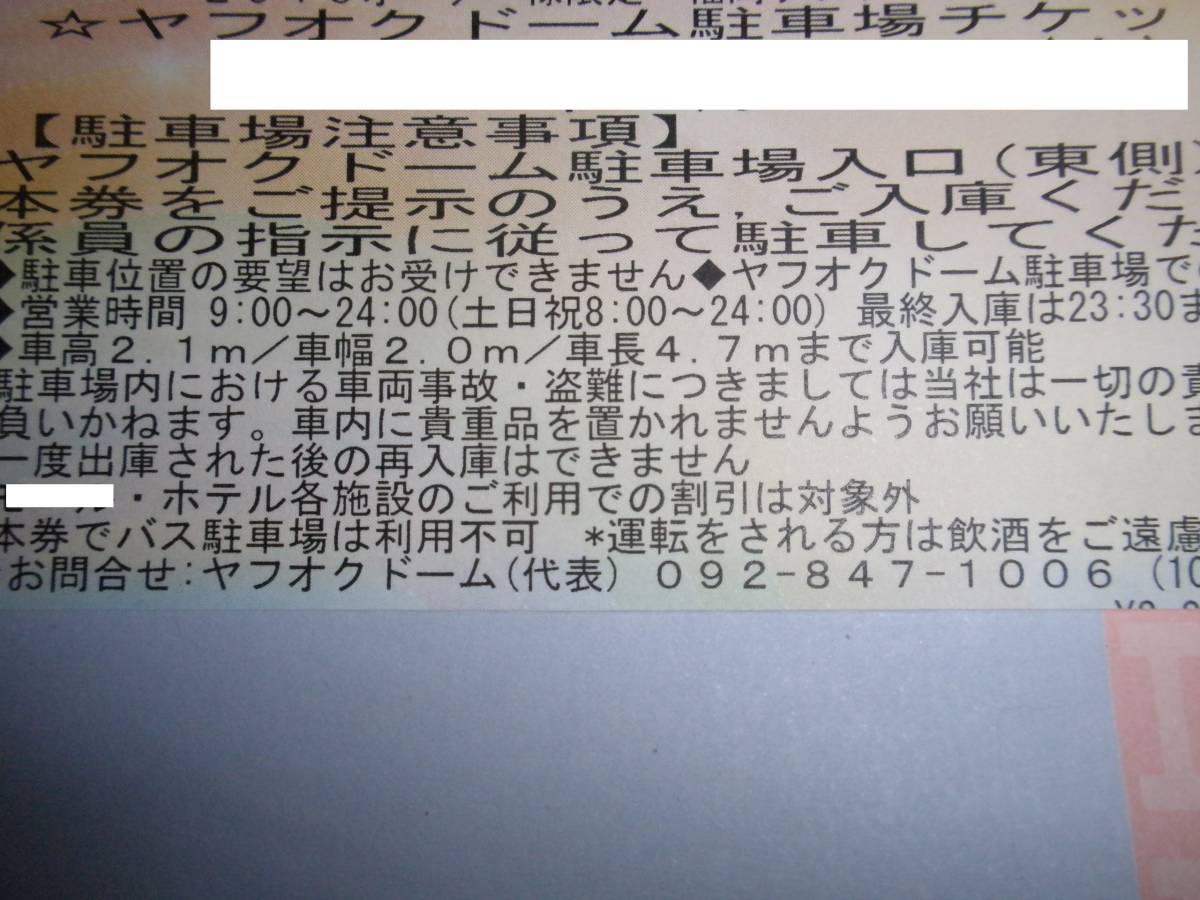 ☆ヤフオクドーム駐車場チケッ
【駐車場注意事項】
ヤフオクドーム駐車場入口(東側)
本券をご提示のうえ,ご入庫くだ
係員の指示に従って駐車してくだ
◆駐車位置の要望はお受けできません◆ヤフオクドーム駐車場での
◆営業時間 9:00～24:00(土日祝8:00～24:00) 最終入庫は23:30ま
◆車高2.1m/車幅2.0m/車長4.7mまで入庫可能
駐車場内における車両事故・盗難につきましては当社は一切の責
負いかねます。車内に貴重品を置かれませんようお願いいたしま
一度出庫された後の再入庫はできません
・ホテル各施設のご利用での割引は対象外
本券でバス駐車場は利用不可 *運転をされる方は飲酒をご遠慮
お問合せ:ヤフオクドーム(代表) 092-847-1006 (10